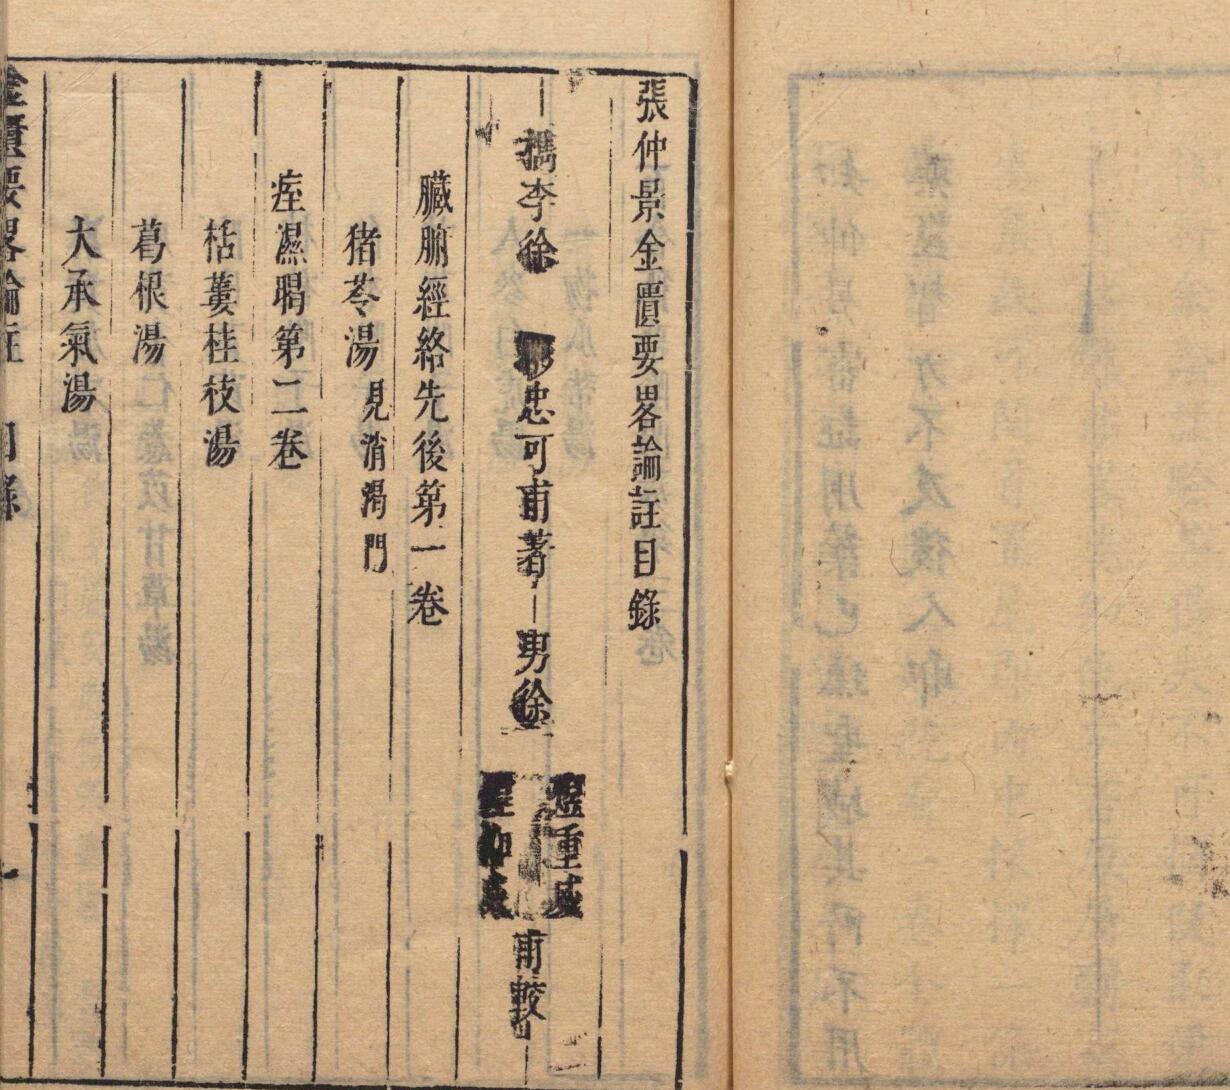 張仲景金匱要畧論註目錄
檇李徐 忠可甫著 男徐 甫較
臟腑經絡先後第一卷
猪苓湯見消渴門
痓濕暍第二卷
栝蔞桂枝湯
葛根湯
大承氣湯
金匱要畧論註 目錄